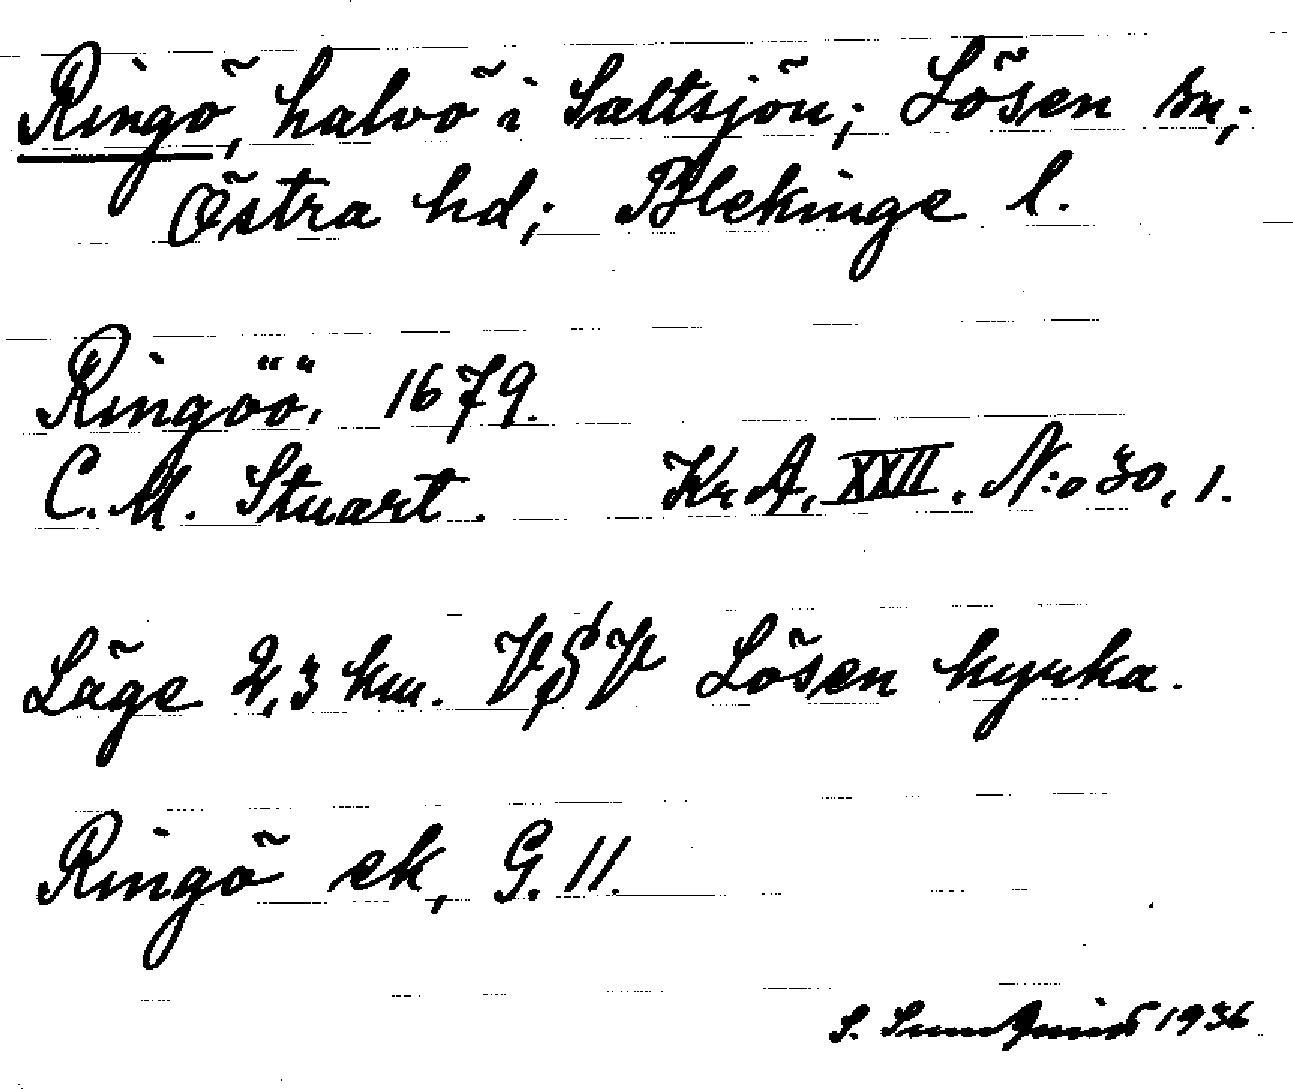 Ringö, halvö i Saltsjön; Lösen sn;
Östra hd; Blekinge l.
Ringöö. 1679.
C. M. Stuart. Kr A, XXII. N:o 30, 1.
Läge 2,3 km. VSV Lösen kyrka.
Ringö ek, G. 11.
S. 1936